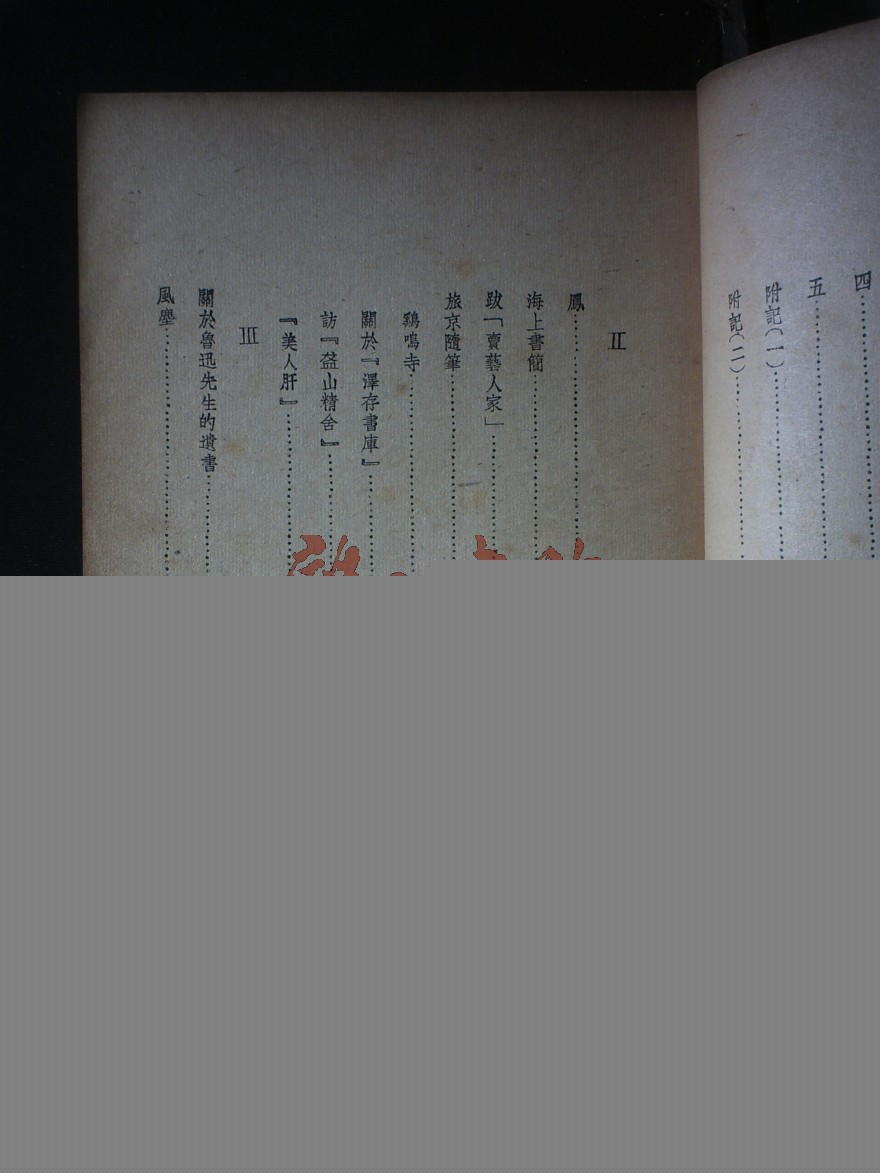 四
五
附記(一)
附記(二)
II
鳳
海上書簡
跋「賣藝人家」
旅京隨筆
鷄鳴寺
關於『澤存書庫』
訪『盋山精舍』
『美人肝』
III
關於魯迅先生的遺書
風塵